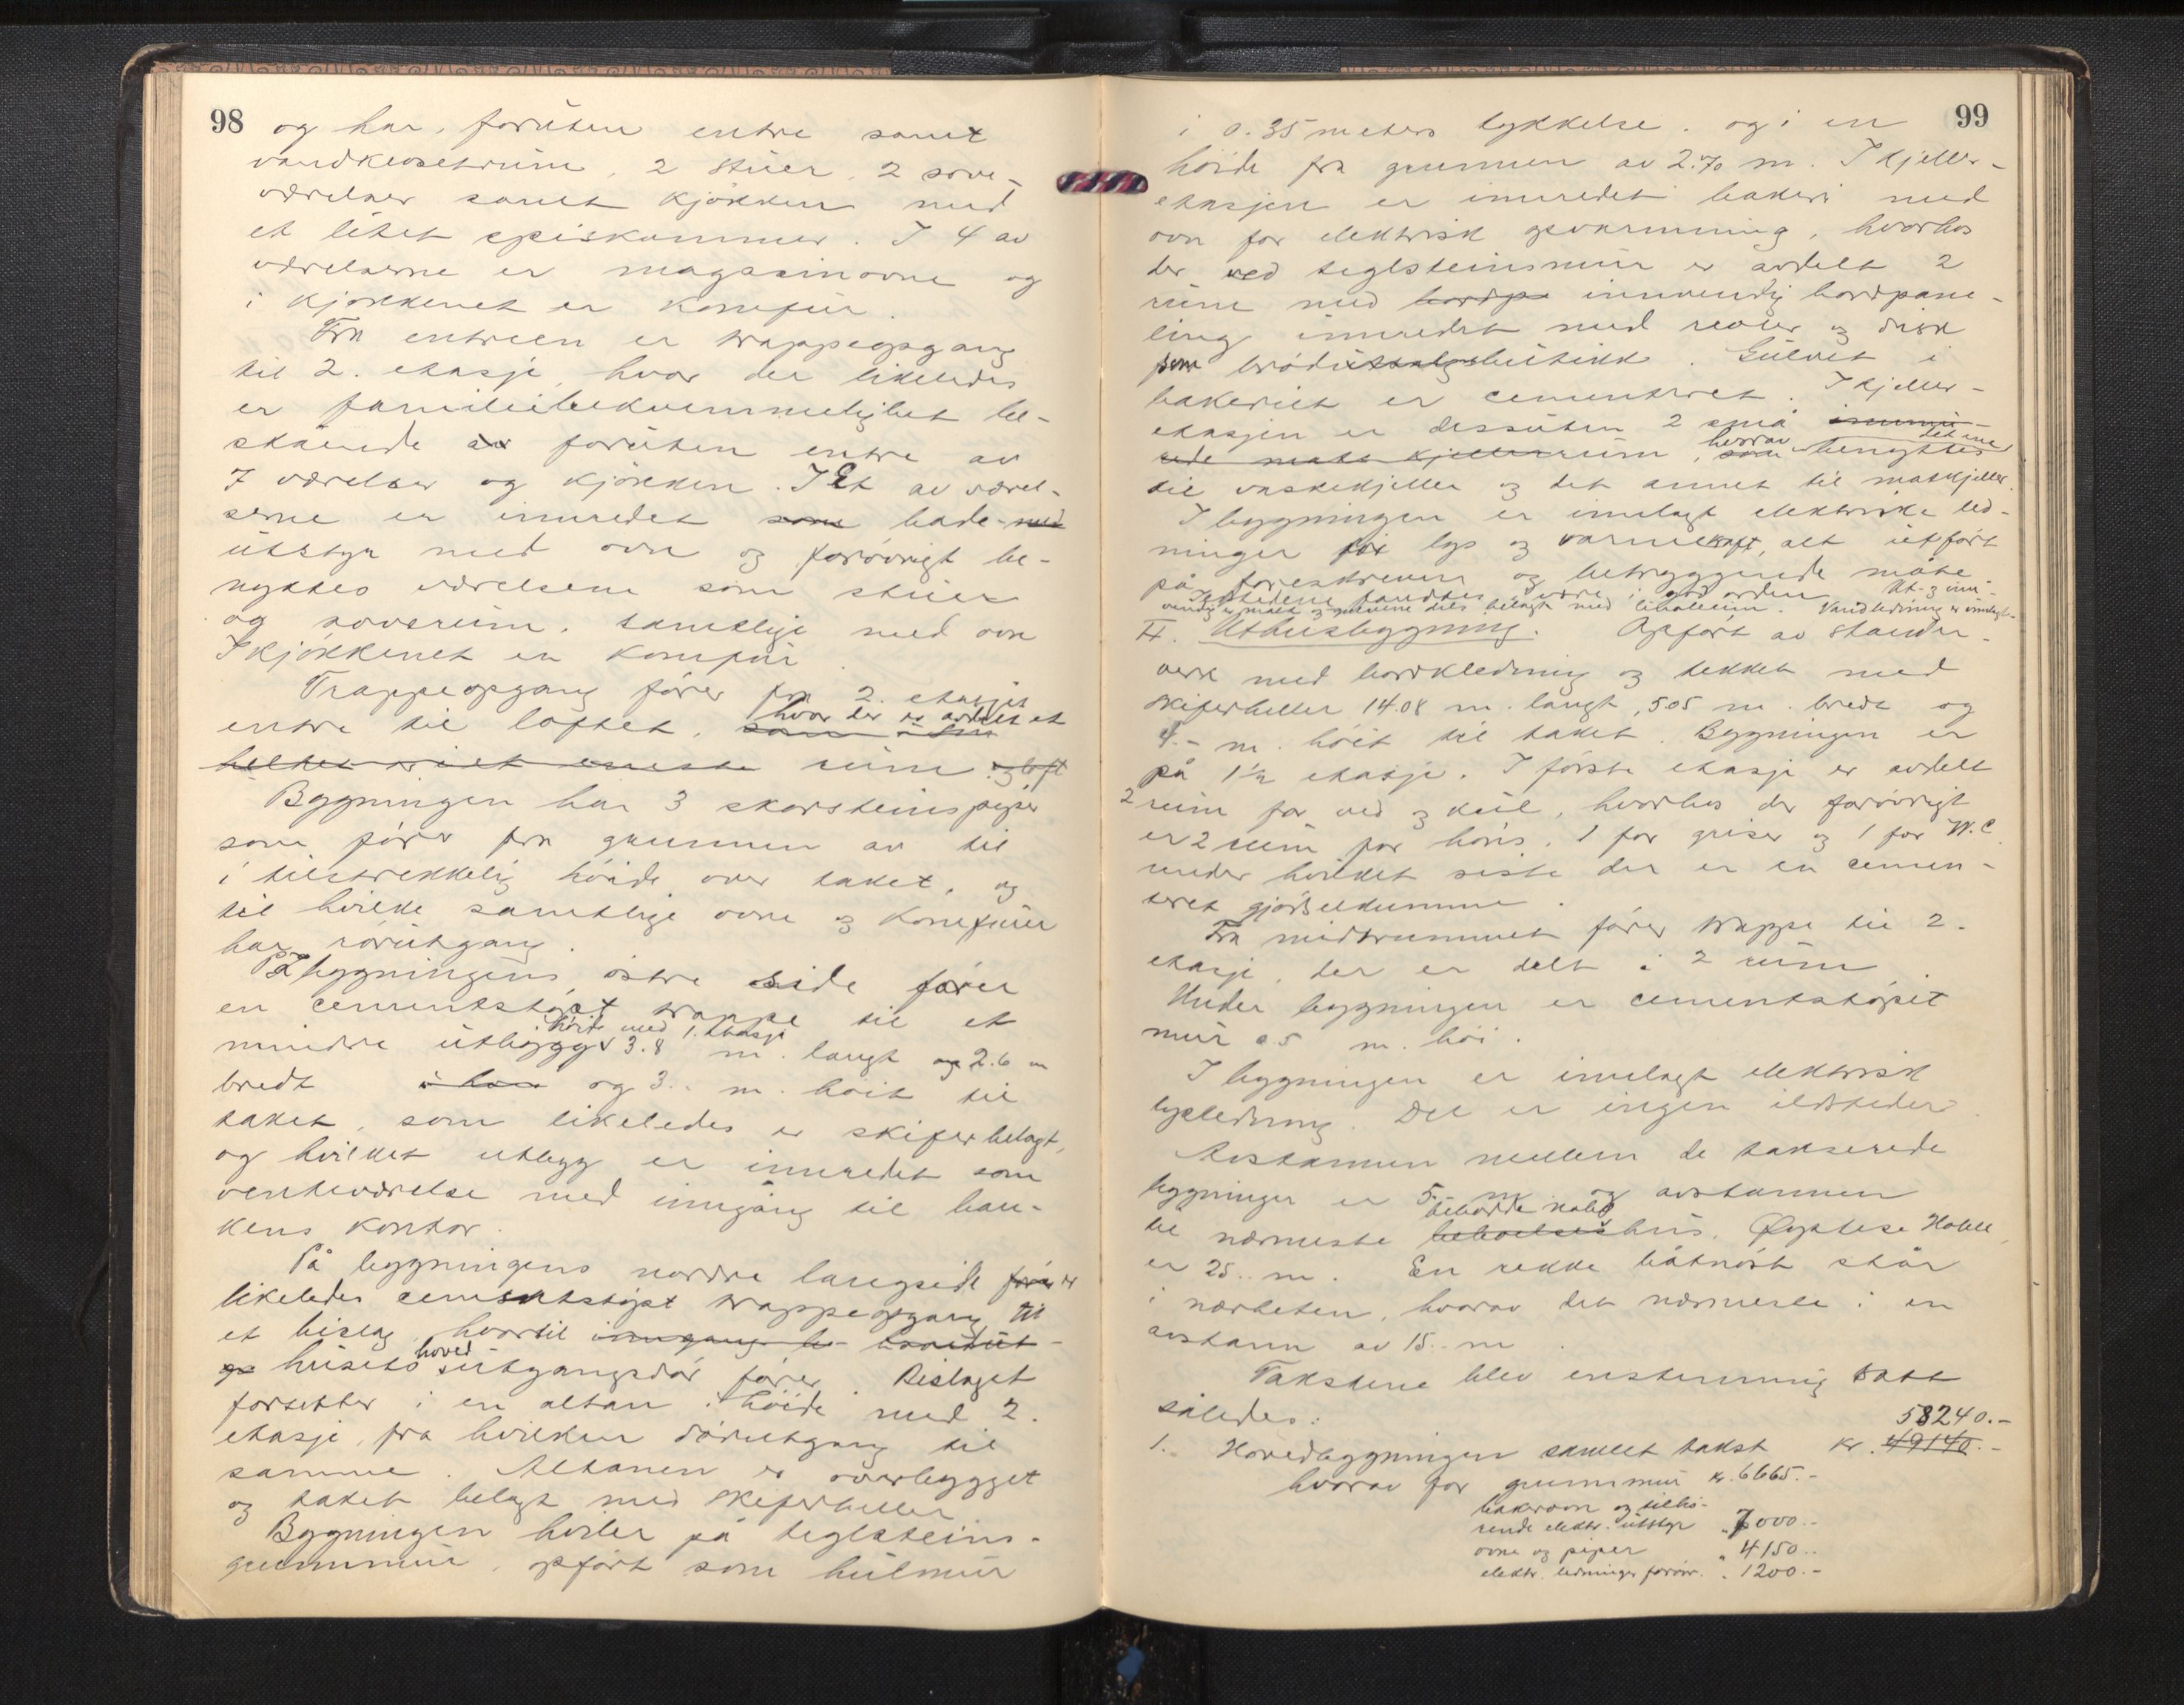 98
og har, foruten entre samt
vandklosetrum, 2 stuer, 2 sove-
værelser samt kjøkken med
et litet spiskammer. I 4 av
værelserne er magasinovne og
i kjøkkenet er komfur.
Fra entreen er trappeopgang
til 2. etasje, hvor der likeledes
er familiebekvemmelighet be-
stående av foruten entre av
7 værelser og kjøkken. I Et av værel-
serne er innredet som bade- med
utstyr med ovn og forøvrigt be-
nyttes værelserne som stuer
og soverum, samtlige med ovn
I kjøkkenet er komfur.
Trappeopgang fører fra 2. etasjes
hvor der er avdelt et
entre til loftet, som
rum og loft
Bygningen har 3 skorsteinspiper
som fører fra grunnen av til
i tilstrekkelig høide over taket, og
til hvilke samtlige ovne og komfurer
har rørutgang.
På bygningens østre side fører
en cementstøpt trappe til et
i høide med 1. etasje
mindre utbygg 3.8 m. langt og 2.6 m
bredt og 3.. m. høit til
taket, som likeledes er skiferbelagt,
og hvilket utbygg er innredet som
venteværelse med inngang til ban-
kens kontor.
På bygningens nordre langside fører er
likeledes cementstøpt trappeopgang til
et bislag, hvortil inngang hovedut-
hoved
husets utgangsdør fører. Bislaget
fortsetter i en altan i høide med 2.
etasje, fra hvilken dørutgang til
samme. Altanen er overbygget
og taket belagt med skiferheller
Bygningen hviler på teglsteins-
grunnmur, opført som hulmur
99
i 0.35 meters tykkelse, og i en
høide fra grunnen av 2.70 m. I kjeller-
etasjen er innredet bakeri med
ovn for elektrisk opvarmning, hvorhos
der ved teglsteinsmur er avdelt 2
rum med bordpa innvendig bordpane-
ling innredet med reoler og disk
som brødutsalgsbutikk. Gulvet i
bakeriet er cementeret. I kjeller-
etasjen er dessuten 2 små innre-
hvorav det ene
rede mat kjellerrum, som benyttes
til vaskekjeller og det annet til matkjeller.
I bygningen er innlagt elektriske led-
ninger for lys og varmekraft, alt utført
på foreskreven og betryggende måte
Ildstedene fandtes være i god orden. Ut- og inn-
vendig er malt og gulvene dels belagt med linoleum. Vandledning er innlagt.
II. Uthusbygning. Opført av stender-
verk med bordkledning og tekket med
skiferheller 14.08 m. langt, 5.05 m. bredt og
4.- m. høit til taket. Bygningen er
på 1½ etasje. I første etasje er avdelt
2 rum for ved og kul, hvorhos der forøvrigt
er 2 rum for høns, 1 for griser og 1 for W.C.
under hvilket siste der er en cemen-
teret gjødselkumme.
Fra midtrummet fører trappe til 2.
etasje, der er delt i 2 rum.
Under bygningen er cementstøpt
mur 0.5 m. høi.
I bygningen er innlagt elektrisk
lysledning. Det er ingen ildsteder.
Avstannen mellem de takserede
bygninger er 5.. m og avstannen
bebodde nabo
til nærmeste beboelseshus, Øystese Hotell,
er 25.. m. En rekke båtnøst står
i nærheten, hvorav det nærmeste i en
avstann av 15.. m.
Takstene blev enstemmig satt
således:
58240.-
1. Hovedbygningen samlet takst kr. 49140.-
hvorav for grunnmur kr. 6665.-
bakerovn og tilhø-
rende elektr. utstyr " 7000.-
ovne og piper " 4150..
elektr. ledninger forøvr. " 1200.-